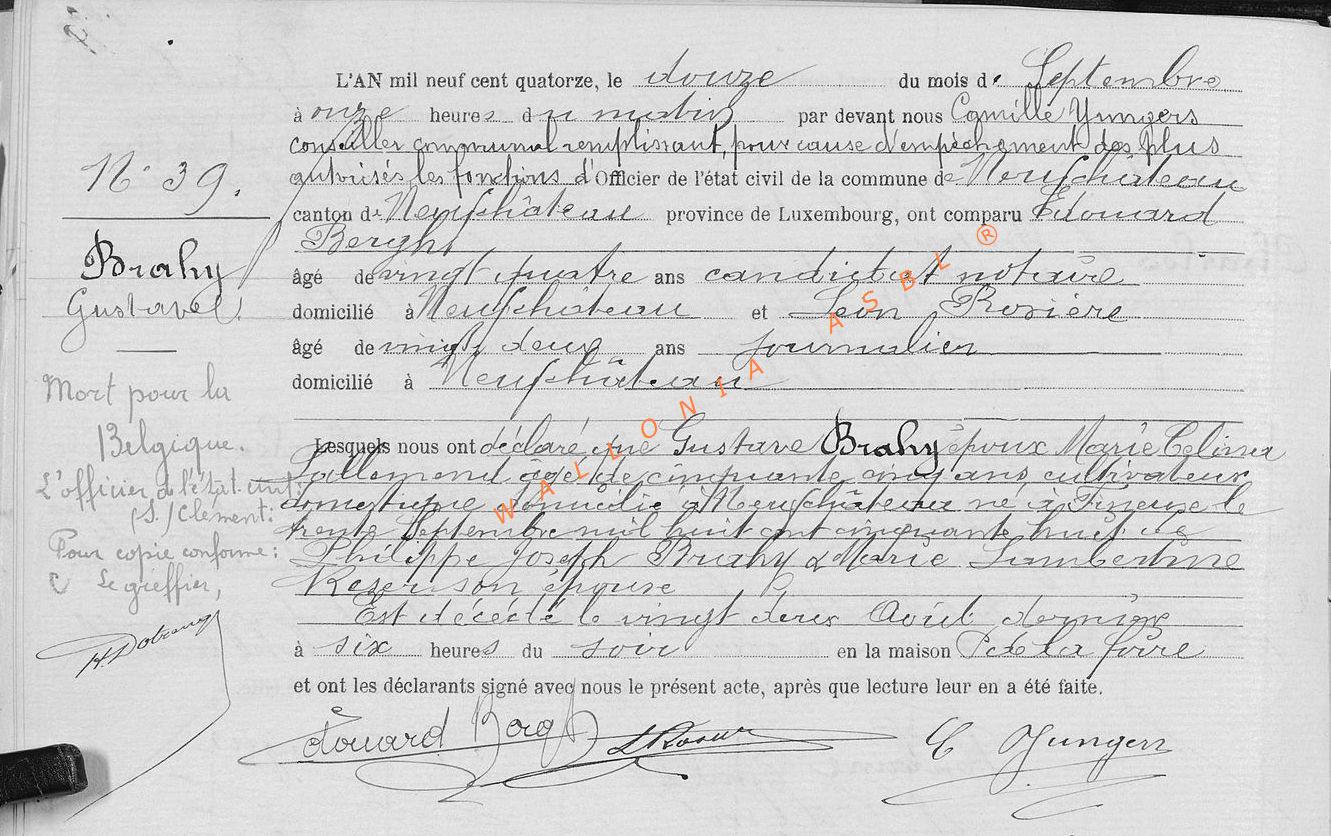 L'AN mil neuf cent quatorze, le douze du mois de Septembre
à onze heures du matin par devant nous Camille Yungers
conseiller communal remplissant, pour cause d'empêchement des plus
autorisés les fonctions d'Officier de l'état civil de la commune de Neufchâteau
canton de Neufchâteau province de Luxembourg, ont comparu Edouard
Bergh
âgé de vingt quatre ans candidat notaire
domicilié à Neufchâteau et Léon Rosière
âgé de vingt deux ans journalier
domicilié à Neufchâteau
Lesquels nous ont déclaré que Gustave Brahy époux Marie Celina
Lallemend agé de cinquante cinq ans, cultivateur
domestique domicilié à Neufchâteau né à le
trente Septembre mil huit cent cinquante huit de
Philippe Joseph Brahy & Marie Lambertine
épouse
Est décédé le vingt deux Août dernier
à six heures du soir en la maison Pl de la foire
et ont les déclarants signé avec nous le présent acte, après que lecture leur en a été faite.
Edouard Bergh L Rosière C Yungers
N° 39.
Brahy
Gustave
Mort pour la
Belgique.
L'officier de l'état-civil:
(S.) Clément:
Pour copie conforme:
Le greffier,
WALLONIA ASBL ®